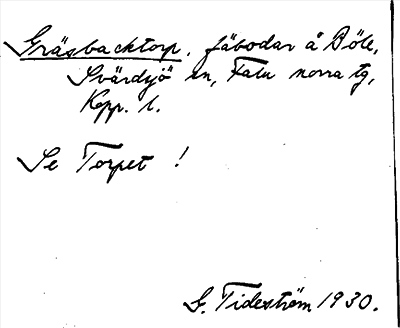 Gräsbacktorp. fäbodar å Böle,
Svärdsjö sn, Falu norra tg,
Kopp. l.
Se Torpet !
G. Tideström 1930.